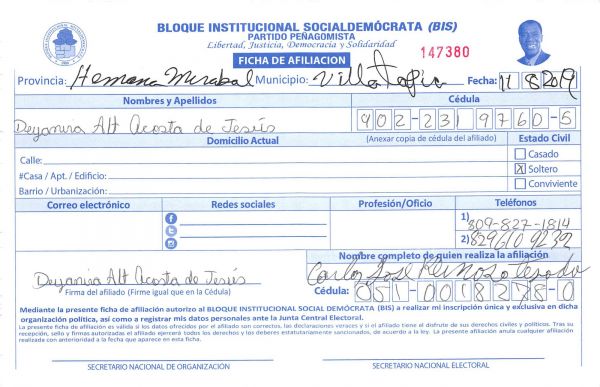 BLOQUE INSTITUCIONAL SOCIALDEMÓCRATA (BIS)
PARTIDO PEÑAGOMISTA
Libertad, Justicia, Democracia y Solidaridad
FICHA DE AFILIACION
147380
Provincia: Hermana Mirabal Municipio: Villa Tapia Fecha: 11 8 2019
Nombres y Apellidos Cédula
Deyanira Alt Acosta de Jesús 402-2319760-5
Domicilio Actual (Anexar copia de cédula del afiliado) Estado Civil
Calle: Casado
#Casa / Apt. / Edificio: X Soltero
Barrio / Urbanización: Conviviente
Correo electrónico Redes sociales Profesión/Oficio Teléfonos
1) 809-827-1814
2) 829 610 9232
Nombre completo de quien realiza la afiliación
Deyanira Alt Acosta de Jesús Carlos José Reinoso
Firma del afiliado (Firme igual que en la Cédula) Cédula: 051-0018278-0
Mediante la presente ficha de afiliación autorizo al BLOQUE INSTITUCIONAL SOCIAL DEMÓCRATA (BIS) a realizar mi inscripción única y exclusiva en dicha
organización política, así como a registrar mis datos personales ante la Junta Central Electoral.
La presente ficha de afiliación es válida si los datos ofrecidos por el afiliado son correctos, las declaraciones veraces y si el afiliado tiene el disfrute de sus derechos civiles y políticos. Tras su
recepción, sello y firmas autorizadas el afiliado ejercerá todos los derechos y los deberes estatutariamente sancionados, de acuerdo a la ley. La presente afiliación anula cualquier afiliación
realizada con anterioridad a la fecha que aparece en esta ficha.
SECRETARIO NACIONAL DE ORGANIZACIÓN SECRETARIO NACIONAL ELECTORAL